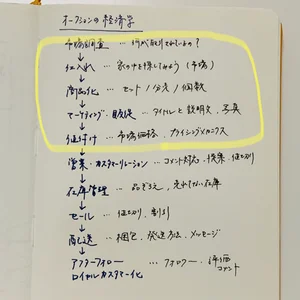 オークションの経済学
市場調査 … 何が取引されているの?
↓
仕入れ … 家の中を探してみよう(市場)
↓
商品化 … セット/分売/個数
↓
マーケティング・販促 … タイトルと説明文、写真
↓
値付け … 市場価格、プライシングメカニクス
↓
営業・カスタマーリレーション … コメント対応、提案、値切り
↓
在庫管理 … 品ぞろえ、売れない在庫
↓
セール … 値切り、割引
↓
配送 … 梱包、発送方法、メッセージ
↓
アフターフォロー … フォロワー、評価
コメント
ロイヤルカスタマー化